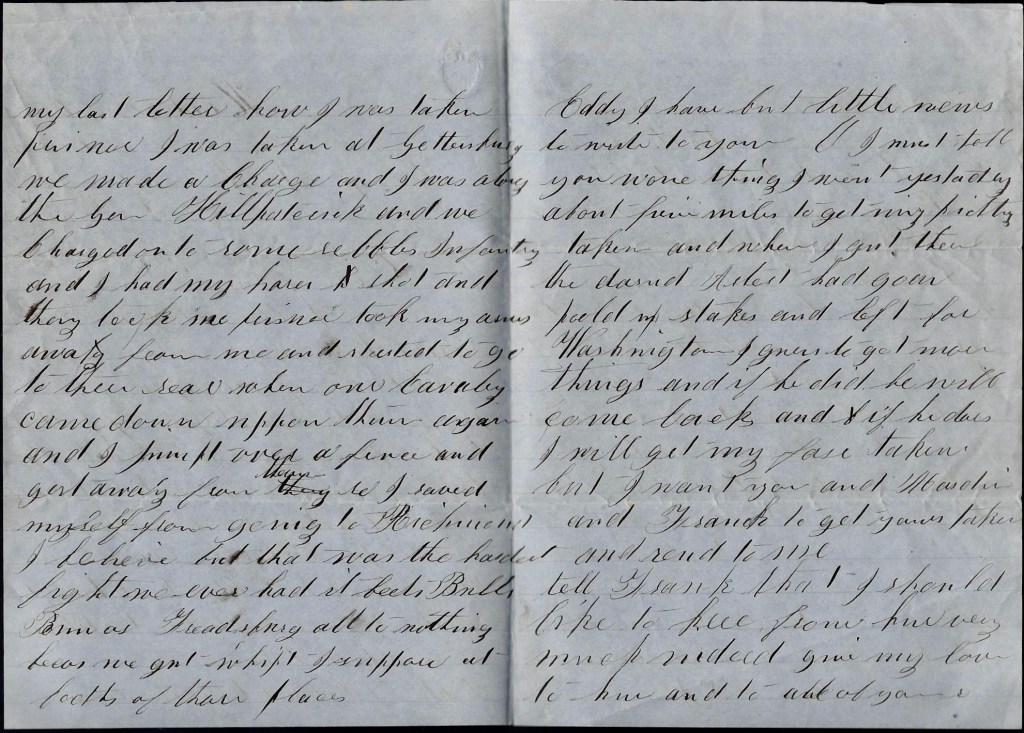 my last letter how I was taken
prisner I was taken at Gettersburg
we made a Charge and I was along
the Gen Killpaterick and we
Charged on to some rebbles Infantry
and I had my horse shot and
they took me prisner took my arms
away from me and started to go
to their rear when our Cavalry
came down uppon them again
and I jumpt over a fence and
got away from them so I saved
myself from going to Richmond
I beleive but that was the hardest
fight we ever had it beets Bulls
Run or Freadsburg all to nothing
beca we got whipt I suppose at
booths of thare places
Eddy I have but little news
to write to you O I must tell
you wone thing I went yestaday
about five miles to get my picttuy
taken and when I got there
the darnd Artist had gorn
pould up stakes and left for
Washington I guess to get more
things and if he did he will
come back and if he does
I will get my fase taken
but I want you and Mardin
and Frank to get yours taken
and send to me
tell Frank that I should
like to heer from hur very
much indeed give my love
to hur and to all of yours